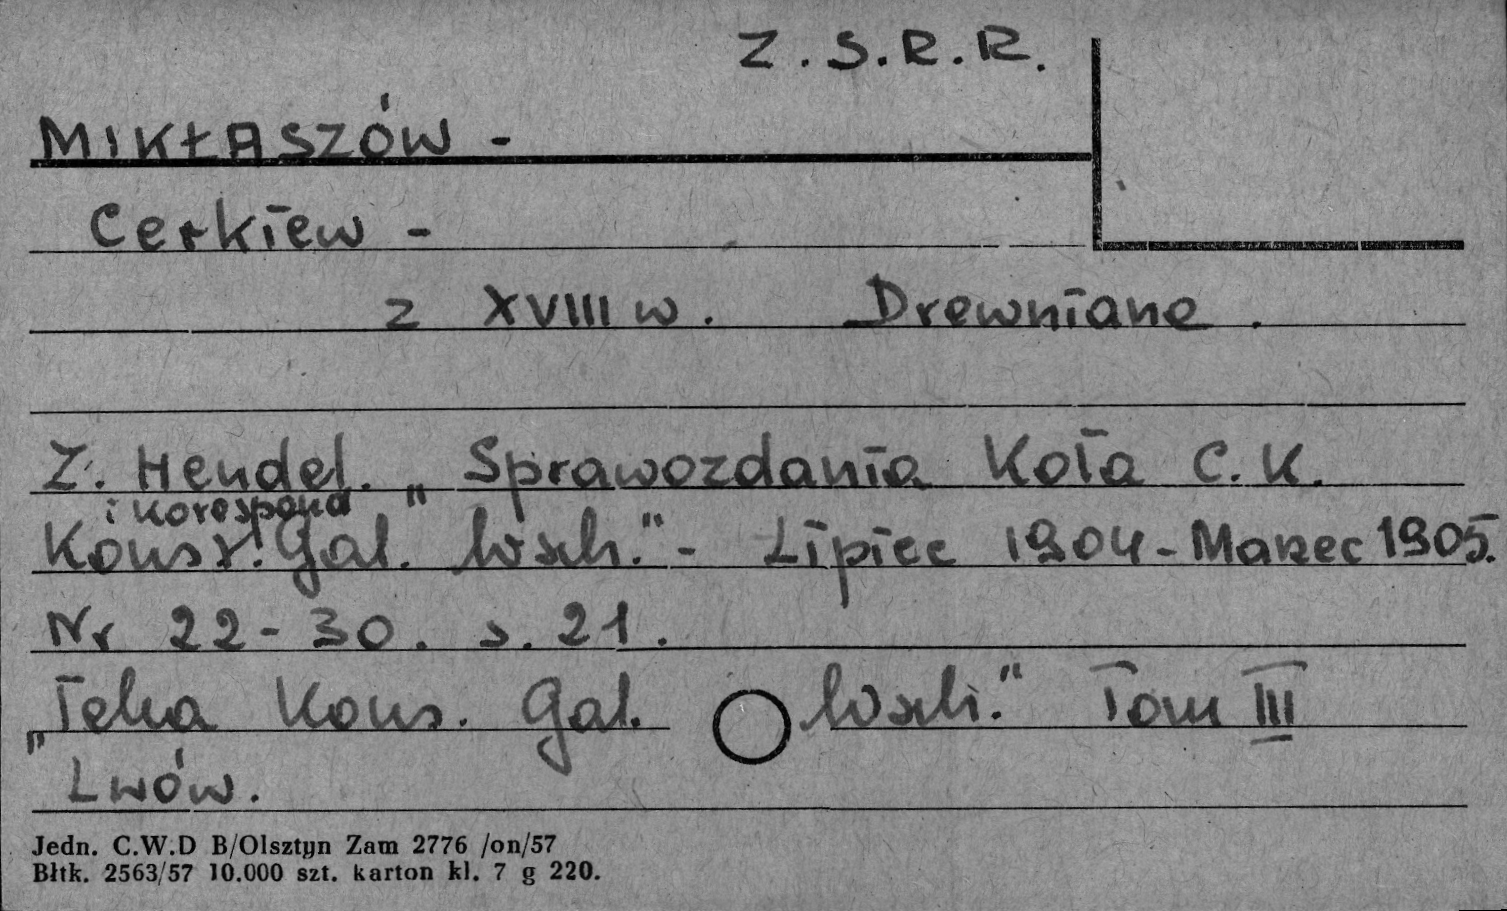 Z.S.R.R.
MIKŁASZÓW -
Cerkiew -
z XVIII w. Drewniane.
Z. Hendel. „Sprawozdania Koła C.K.
i korespond
Konst. Gal. Wsch." - Lipiec 1904 - Marzec 1905.
Nr 22-30. s. 21.
„Teka Kons. Gal. Wsch." Tom III
Lwów.
Jedn. C.W.D B/Olsztyn Zam 2776 /on/57
Błtk. 2563/57 10.000 szt. karton kl. 7 g 220.